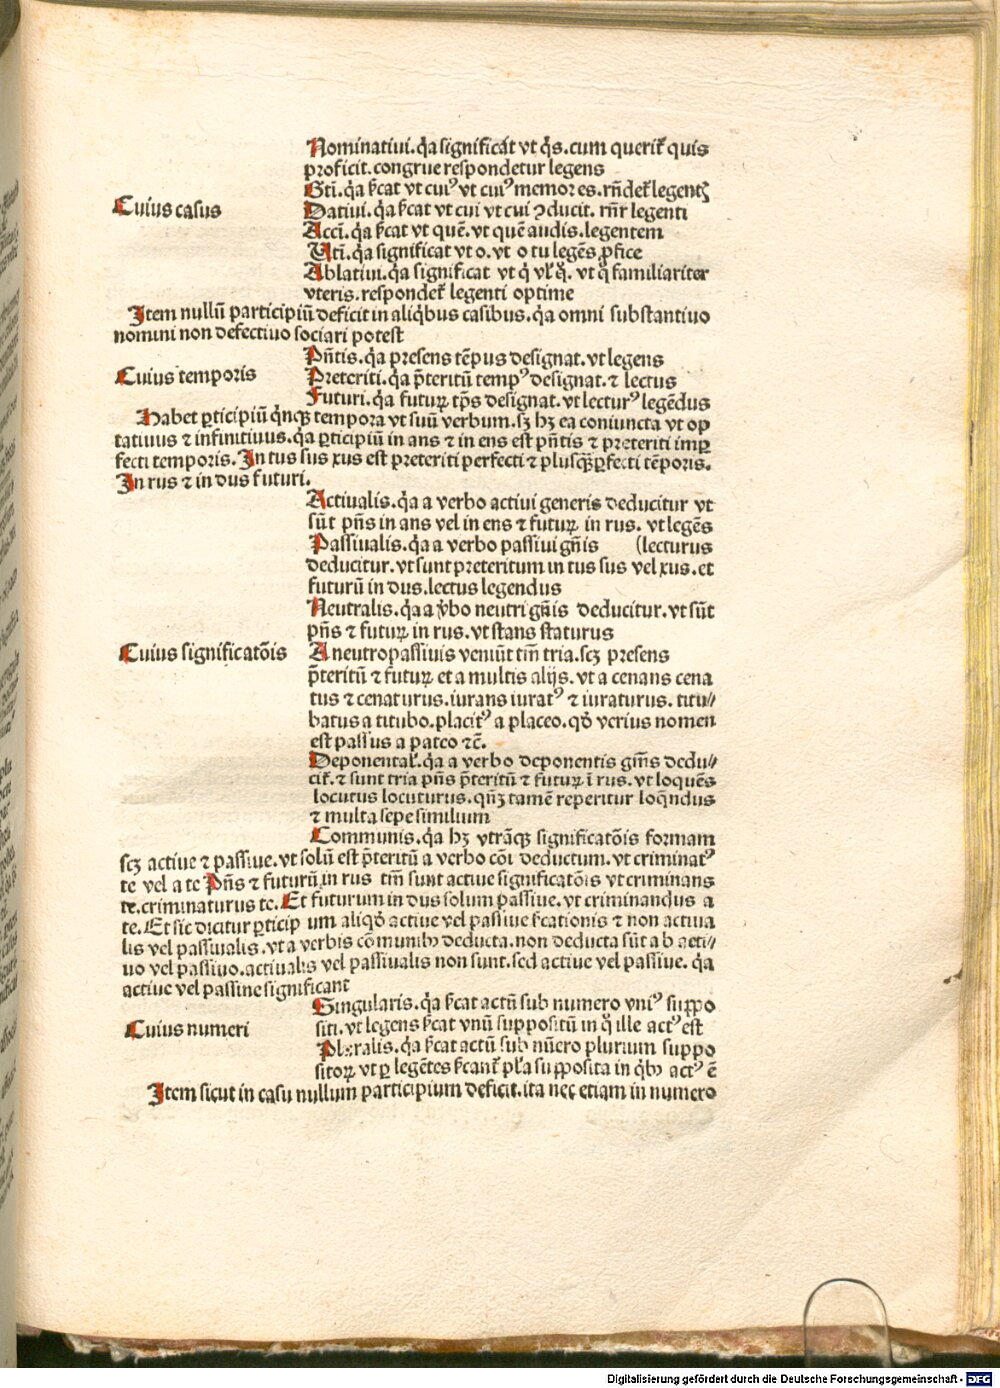 Nominatiui.q̇a significāt vt q̇s.cum querit̛ quis
proficit.congrue respondetur legens
Gti̅.q̇a ſcat vt cuiꝰ vt cuiꝰ memores.rn̄det̛ legentꝭ
Cuius casus
Datiui.q̇a ſcat vt cui vt cui ꝯducit.rn̄r legenti
Acci̅.q̇a ſcat vt quē.vt quē audis.legentem
Uti̅.q̇a significat vt o.vt o tu legēs ꝓfice
Ablatiui.q̇a significat vt q̇ vl̛ q̇.vt q̇ familiariter
vteris.respondet̛ legenti optime
Item nullū participiū deficit in aliq̇bus casibus.q̇a omni substantiuo
nomini non defectiuo sociari potest
Pn̄tis.q̇a presens tēpus designat.vt legens
Cuius temporis
Preteriti.q̇a p̄teritū tempꝰ designat.⁊ lectus
Futuri.q̇a futuꝝ tp̄s designat.vt lecturꝰ legēdus
Habet ꝑticipiū q̇nqꝫ tempora vt suū verbum.sꝫ hꝫ ea coniuncta vt op
tatiuus ⁊ infinitiuus.q̇a ꝑticipiū in ans ⁊ in ens est pn̄tis ⁊ preteriti imꝑ
fecti temporis.In tus sus xus est preteriti perfecti ⁊ plusqꝫꝑfecti tēporis.
In rus ⁊ in dus futuri.
Actiualis.q̇a a verbo actiui generis deducitur vt
sūt pn̄s in ans vel in ens ⁊ futuꝝ in rus.vt legēs
Passiualis.q̇a a verbo passiui gn̄is (lecturus
deducitur.vt sunt preteritum in tus sus vel xus.et
futurū in dus.lectus legendus
Neutralis.q̇a a v̇bo neutri gn̄is deducitur.vt sūt
pn̄s ⁊ futuꝝ in rus.vt stans staturus
Cuius significatōis
A neutropassiuis veniūt tm̄ tria.scꝫ presens
p̄teritū ⁊ futuꝝ et a multis alijs.vt a cenans cena
tus ⁊ cenaturus.iurans iuratꝰ ⁊ iuraturus.titu⸗
batus a titubo.placitꝰ a placeo.qḋ verius nomen
est passus a pateo ⁊c̄.
Deponental̛.q̇a a verbo deponentis gn̄is dedu⸗
cit̛.⁊ sunt tria pn̄s p̄teritū ⁊ futuꝝ ī rus.vt loquēs
locutus locuturus.qn̄ꝫ tamē reperitur loq̄ndus
⁊ multa sepe similium
Communis.q̇a hꝫ vtrāqꝫ significatōis formam
scꝫ actiue ⁊ passiue.vt solū est p̄teritū a verbo cōi deductum.vt criminatꝰ
te vel a te Pn̄s ⁊ futurū in rus tm̄ sunt actiue significatōis vt criminans
te.criminaturus te.Et futurum in dus solum passiue.vt criminandus a
te.Et sic dicitur ꝑticip um aliqḋ actiue vel passiue ſcationis ⁊ non actiua
lis vel passiualis.vt a verbis cōmunibꝫ deducta.non deducta sūt a b acti⸗
uo vel passiuo.actiualis vel passiualis non sunt.sed actiue vel passiue.q̇a
actiue vel passiue significant
Singularis.q̇a ſcat actū sub numero vniꝰ suppo
Cuius numeri
siti.vt legens ſcat vnū suppositū in q̇ ille actꝰ est
Pluralis.q̇a ſcat actū sub nūero plurium suppo
sitoꝝ vt ꝑ legētes ſcant̛ pl̛a supposita in q̇bꝫ actꝰ ē
Item sicut in casu nullum participium deficit.ita nec etiam in numero
Digitalisierung gefördert durch die Deutsche Forschungsgemeinschaft - DFG